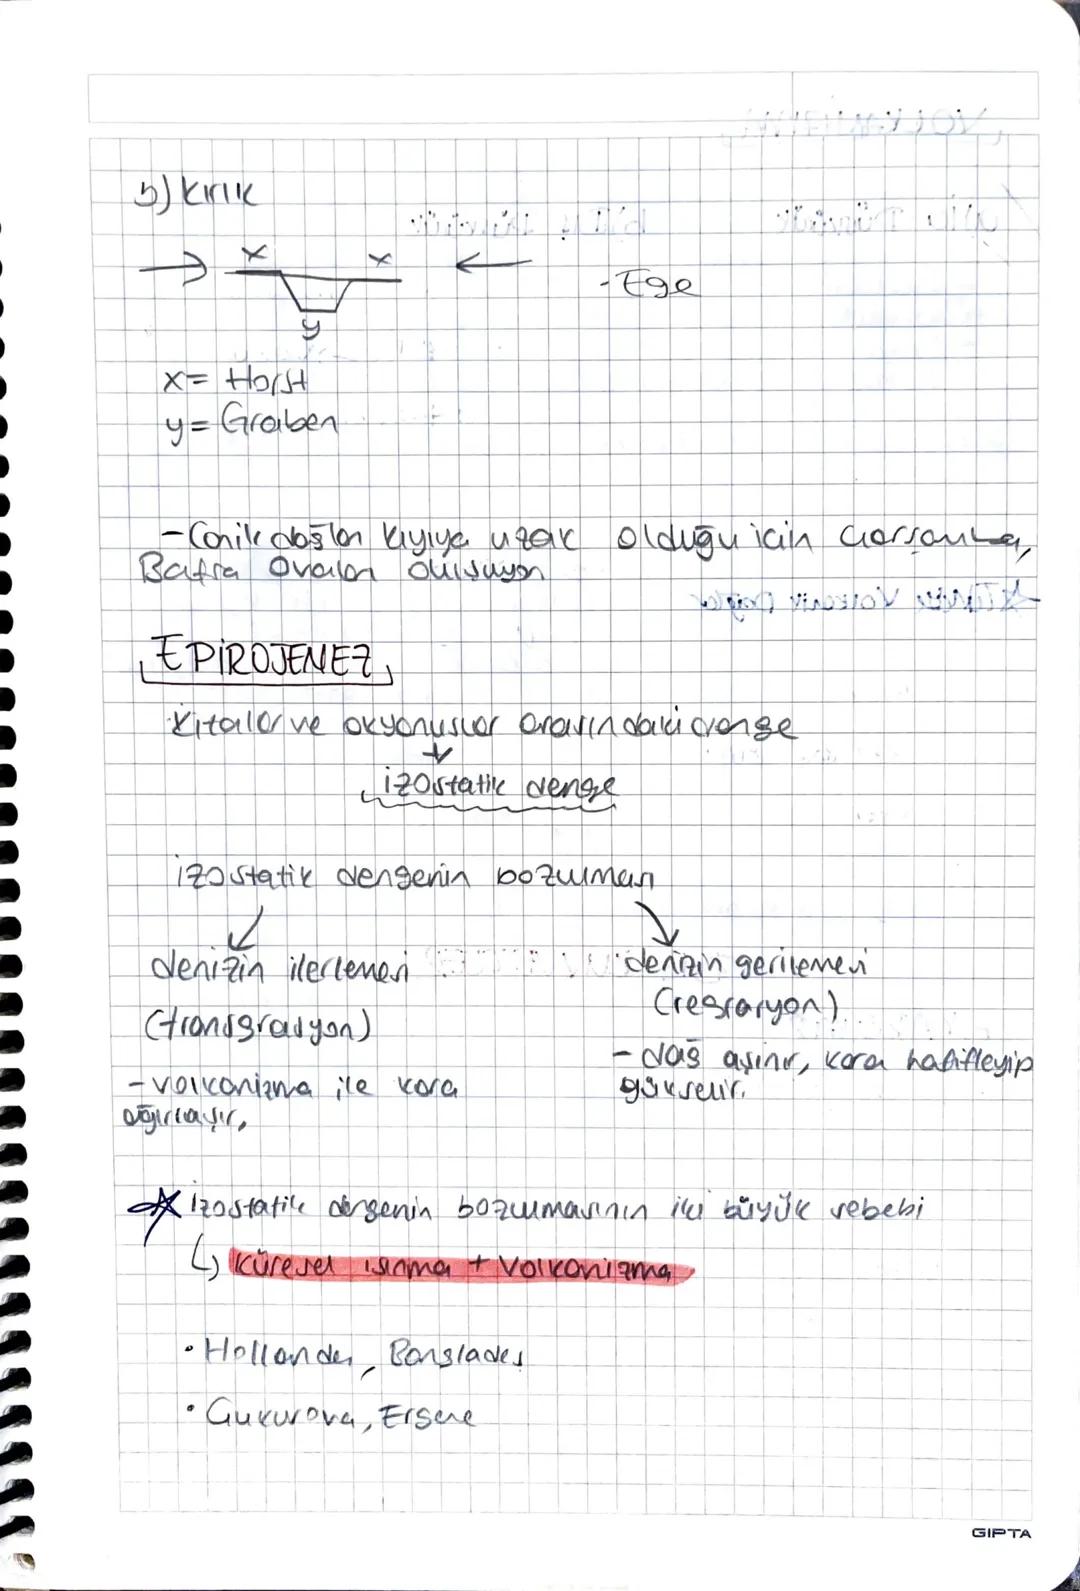 b) Kırık
x x
- Ege
y
x= Horst
y= Graben
- Canik dağları kıyıya uzak olduğu için Çarşamba,
Bafra Ovaları oluşuyor
EPİROJENEZ
Kıtalar ve okyanuslar arasındaki denge
izostatik denge
izostatik dengenin bozulması
denizin ilerlemesi denizin gerilemesi
(transgrasyon) (regrasyon)
- volkanizma ile kara - dağ aşınır, kara hafifleyip
ağırlaşır, yükselir.
izostatik dengenin bozulmasının iki büyük sebebi
Küresel ısınma + Volkanizma
• Hollanda, Bangladeş
• Çukurova, Ergene
GIPTA